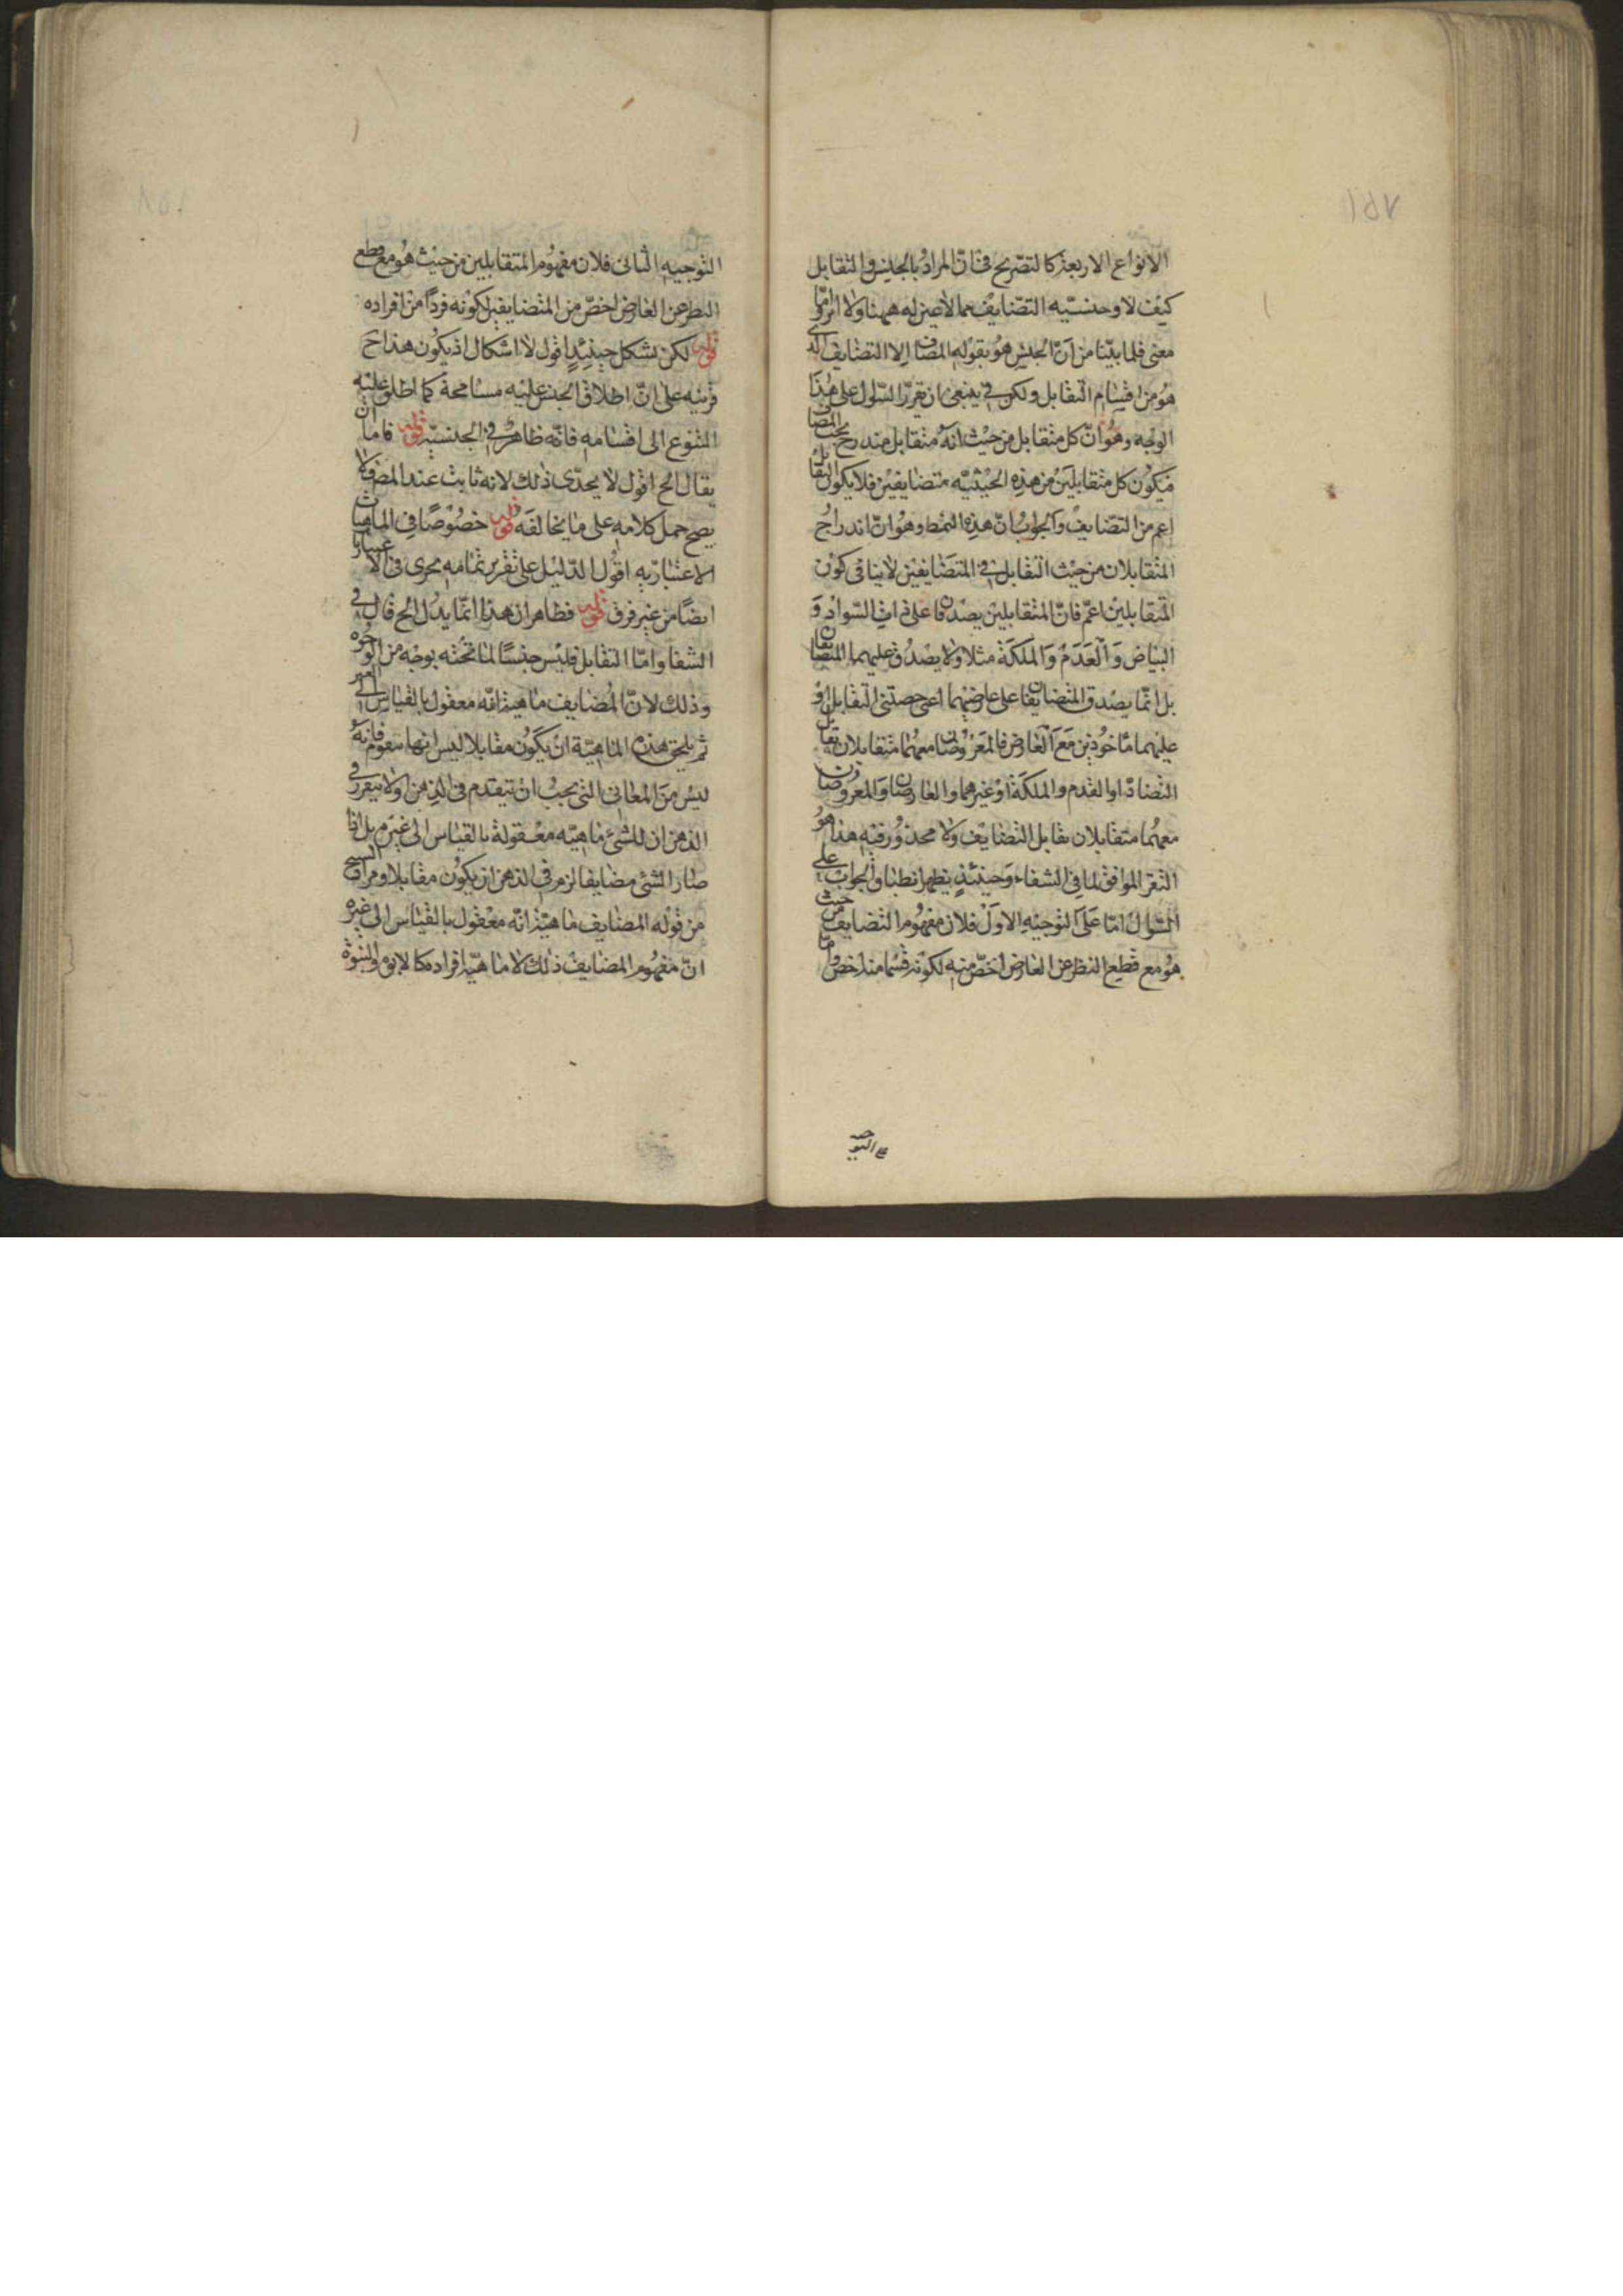 الانواع الاربعة كالتصريح فى ان المراد بالجنس هو التقابل
كيف لا وجنسيّه التضايف مما لا عين له ههنا ولا اثر وامّا
معنى فلما بيّنا من انّ الجنس هو بقوله المضاف الا التضايف الذى
هو من اقسام التقابل ولكن ينبغى ان تقرر السّؤل على هذا
الوجه وهو انّ كل متقابل من حيث انه متقابل مندرج تحت المضاف
فيكون كل متقابلين من هذه الحيثيّه متضايفين فلا يكون التقابل
اعم من التضايف والجواب انّ هذه النمط وهو انّ اندراج
المتقابلان من حيث التقابل فى المتضايفين لا ينافى كون
المتقابلين اعمّ فانّ المتقابلين يصدقان على ذات السّواد وَ
البياض وَالعَدَم وَالملكَة مثلا ولا يصدُق عليهما المتضايفان
بل انّما يصدق المتضايفان على عارضيهما اعنى حصتى التقابل او
عليهما ماخوذين مَعَ العارض فالمعروضان معهما متقابلان تقابل
التضادّ او القدم والملكة او غيرهما والعارضان والمعروضان
معهما متقابلان تقابل التضايف ولا محذور فيه هذا هو
التقر الموافق لما فى الشفاء وَحينئذٍ يظهر انطباق الجواب على
السّؤال امّا عَلى التوجيه الاول فلان مفهوم التضايف من حيث
هو مع قطع النظر عن العارض اخصّ منه لكونه قسما منه اخص وامّا
على التوجيه
التوجيه الثانى فلان مفهوم المتقابلين من حيث هُو مع قطع
النظر عن العارض اخصّ من المتضايفين لكونه فردًا من افراده
قوله لكن يشكل حينئِدٍ اقول لا اشكال اذ يكون هذا ح
قرينه على انّ اطلاق الجنس عليه مسامحة كما اطلق عليه
التنوع الى اقسامه فانّه ظاهر فى الجنسيّة قوله فاما ان
يقال الخ اقول لا يجدى ذلك لانه ثابت عند المصَ ولا
يصح حمل كلامه على ما يخالفه قوله خصُوصًا فى الماهيات
الاعتباريه اقول الدّليل على تقرير تمامه يجرى فى الاعتبارات
ايضًا من غير فرق قوله فظاهر ان هذا انّما يدُل الخ قال فى
الشفا وامّا التقابل فليس جنسًا لما تحته بوجه من الوُجُوه
وذلك لانّ المُضايف ماهيته انّه معقول بالقياس الى الغير
ثم يلحق هذه الماهيّة ان يكون مقابلا ليس انها يتقوم فانه
ليس منَ المعانى التى يجبُ ان تتقدم فى الذهن اولا يتقرر فى
الذهن ان للشئ ماهيّه معقولة بالقياس الى غيره بل اذا
صار الشئ مضايفا لزم فى الذهن ان يكون مقابلا ومراد الشيخ
من قوله المضايف ماهيّته انّه معقول بالقياس الى غيره
انّ مفهوم المضايف ذلك لا ماهيّه افراده كالابوة والبنوة